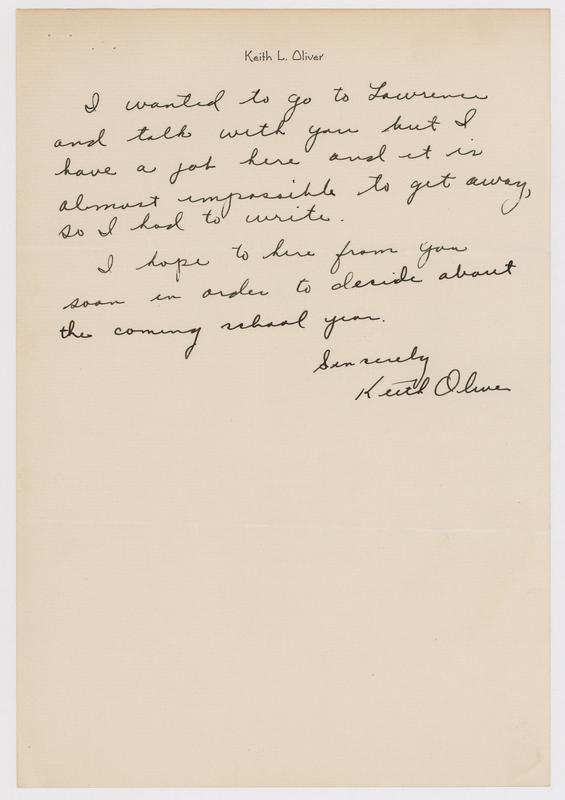 Keith L. Oliver
I wanted to go to Lawrence
and talk with you but I
have a job here and it is
almost impossible to get away,
so I had to write.
I hope to here from you
soon in order to decide about
the coming school year.
Sincerely
Keith Oliver